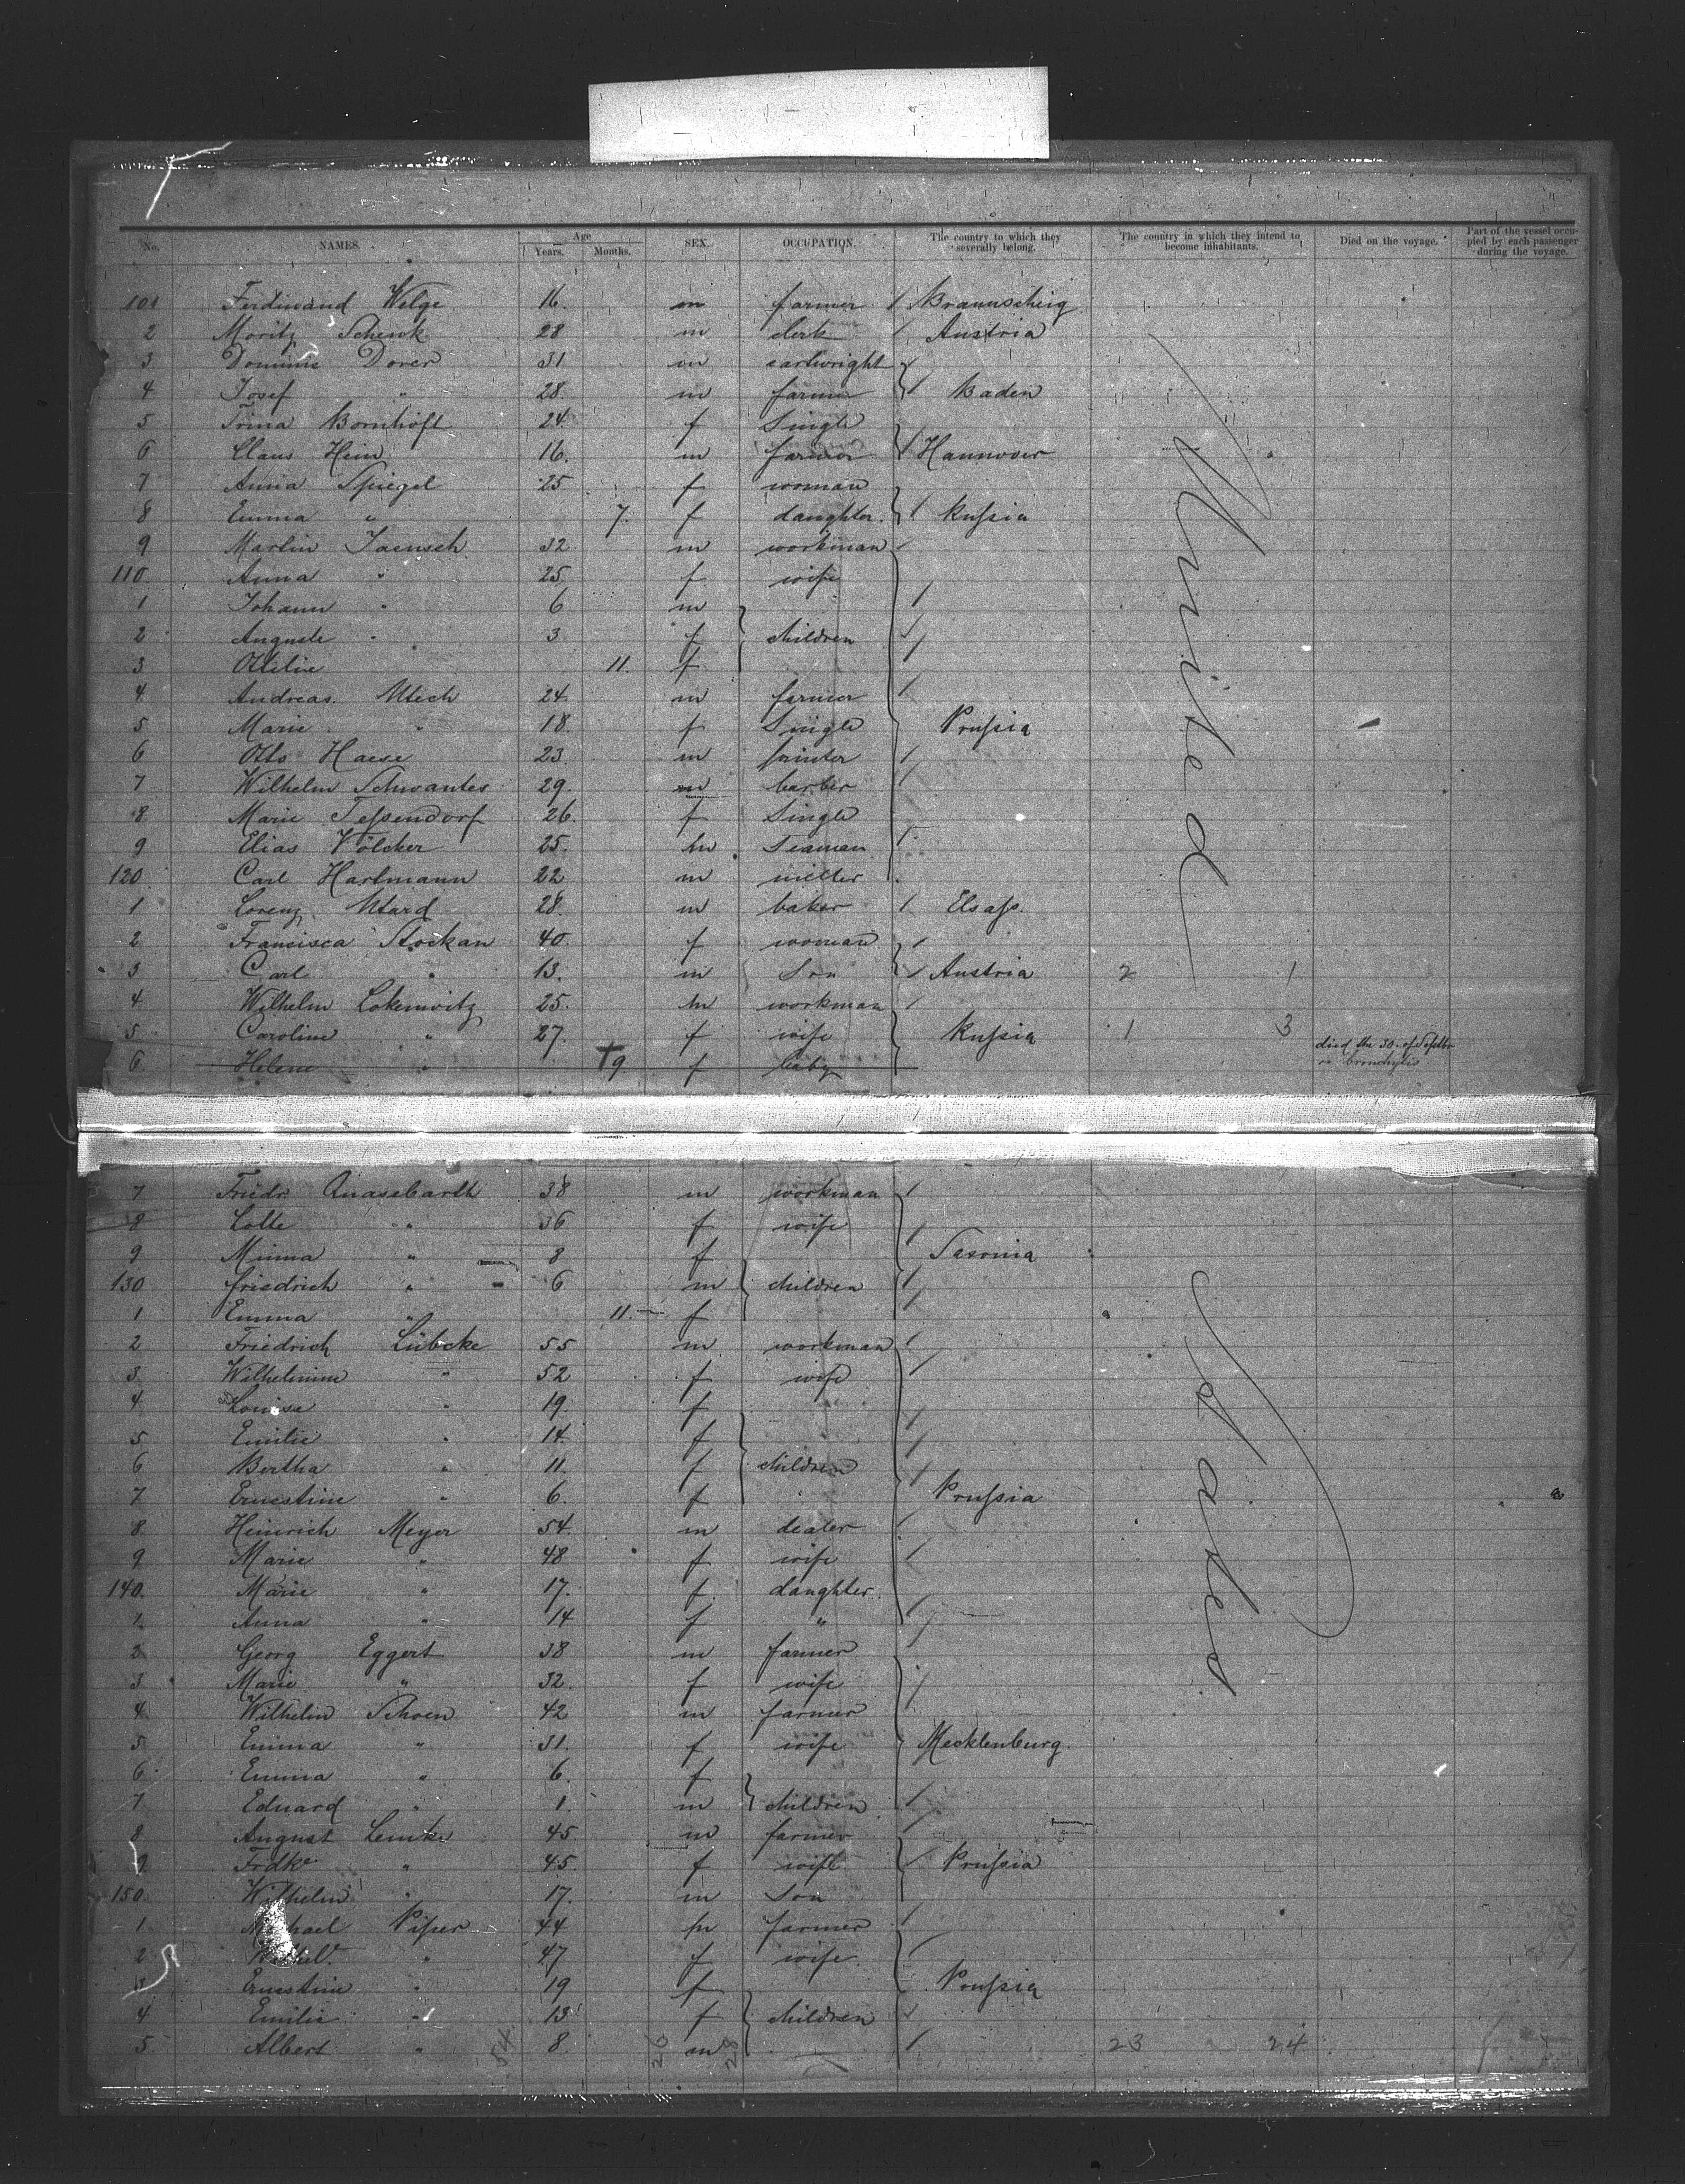 No. NAMES. Age Years. Months. SEX. OCCUPATION. The country to which they severally belong. The country in which they intend to become inhabitants. Died on the voyage. Part of the vessel occupied by each passenger during the voyage.
101 Ferdinand Welge 16. m farmer Braunscheig
2 Moritz Schenk 28 m clerk Austria
3 Dominic Dorer 31 m cartwright
4 Josef " 28. m farmer Baden
5 Trina Bornhöft 24. f Single
6 Claus Hein 16. m farmer Hannover
7 Anna Spiegel 25 f woman
8 Emma " 7. f daughter. Russia
9 Martin Jaensch 32 m workman
110 Anna " 25 f wife
1 Johann " 6 m
2 Auguste " 3 f children
3 Ottilie 11. f
4. Andreas. Utech 24. m farmer
5 Marie " 18. f Single Prussia
6 Otto Haese 23. m
7 Wilhelm Schwantes 29. m barber
8 Marie Tessendorf 26. f Single
9 Elias Völcker 25. m Seaman
120 Carl Hartmann 22 m miller
1 Lorenz 28. m baker Elsass.
2 Francisca Stockan 40. f woman
3 Carl " 13. m Son Austria 2 1
4. Wilhelm Lokemvitz 25. m workman
5. Caroline " 27. f wife Russia 1 3
6. Helene " †9 f baby died the 30. of Septbr bronchytis
United
7 Friedr. Quasebarth 38 m workman
8 Lotte " 36 f wife
9 Minna " 8 f Saxonia
130 Friedrich " 6 m children
1 Emma " 11. f
2 Friedrich Lübcke 55 m workman
3. Wilhelmine " 52 f wife
4. Louise " 19. f
5 Emilie " 14. f
6 Bertha " 11. f children
7 Ernestine " 6. f Prussia
8. Heinrich Meyer 54. m dealer
9 Marie " 48 f wife
140. Marie " 17. f daughter
1. Anna " 14 f "
2 Georg Eggert 38 m farmer
3 Marie " 32. f wife
4. Wilhelm Schoen 42 m farmer
5 Emma " 31. f wife Mecklenburg.
6. Emma " 6. f
7 Eduard " 1. m children
8 August Lemke 45 m farmer
9 Frdke " 45. f wife Prussia
150 Wilhelm " 17. m Son
1. Michael Piper 44 m farmer
2 " 47 f wife
3 Ernestine " 19 f Prussia
4 Emilie " 13 f children
5. Albert " 54. 8. 26 m 28 23 24
States